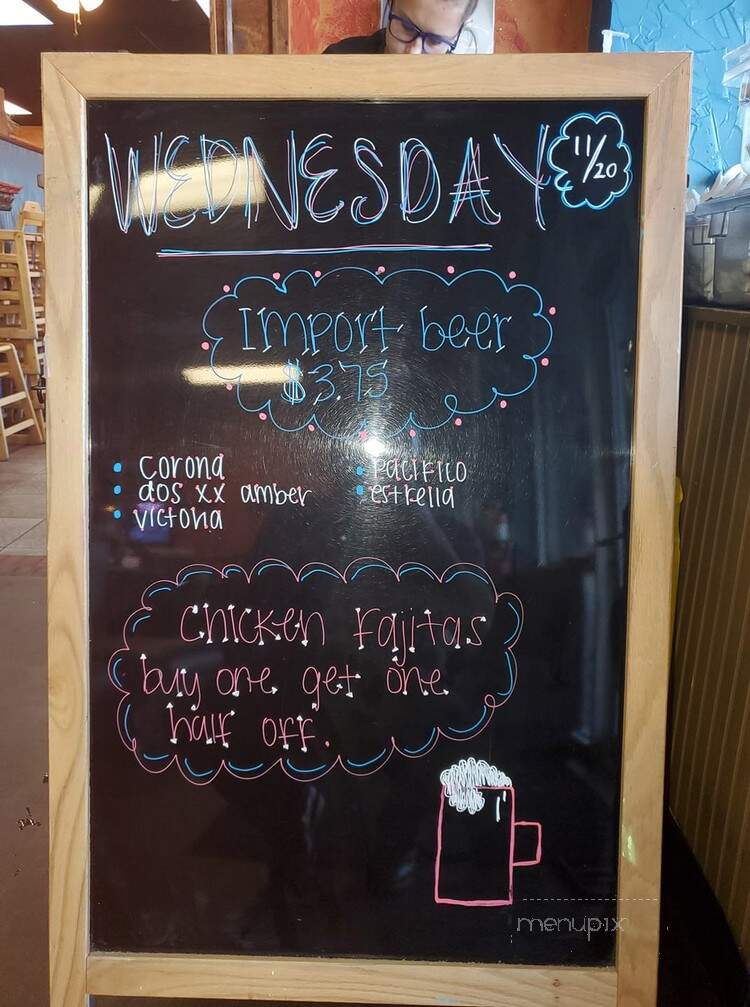 WEDNESDAY 11/20
Import beer
$3.75
• corona
• dos xx amber
• victoria
• pacifico
• estrella
Chicken Fajitas
buy one get one
half off.
menupix